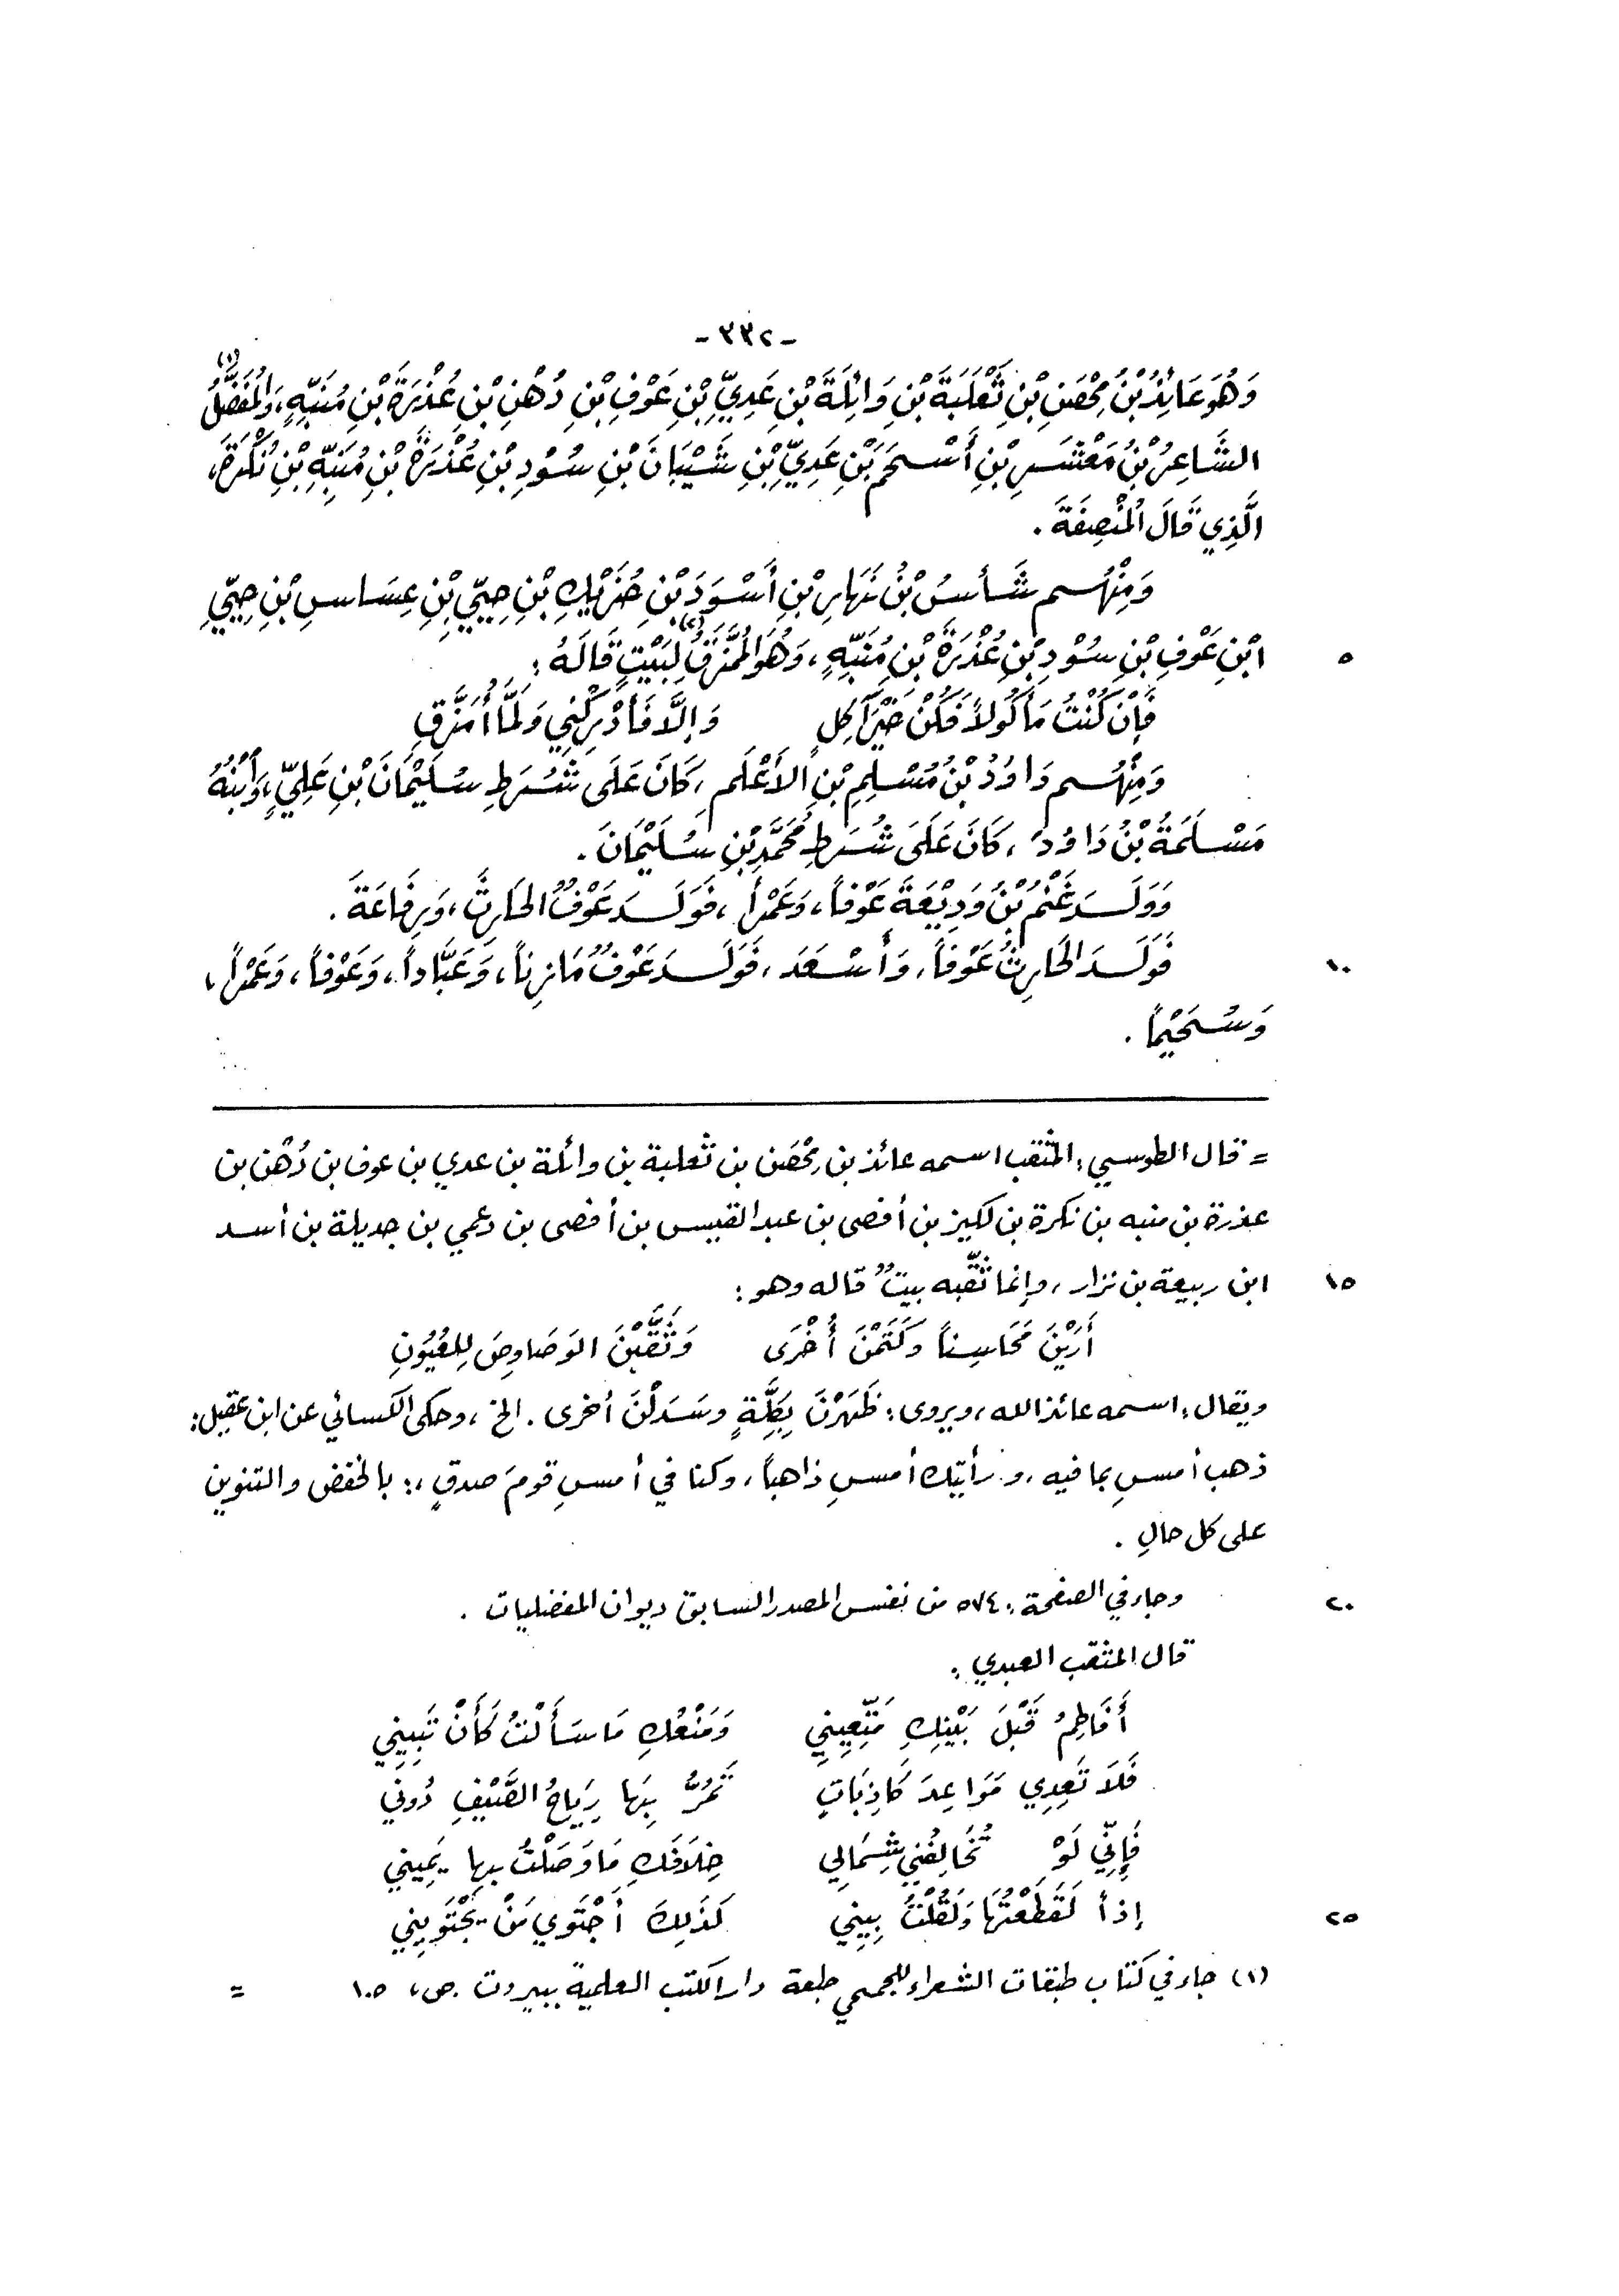 -٣٣٢-
وَهُوَ عَائِذُ بْنُ مِحْصَنِ بْنِ ثَعْلَبَةَ بْنِ وَائِلَةَ بْنِ عَدِيِّ بْنِ عَوْفِ بْنِ دُهْنِ بْنِ عُذْرَةَ بْنِ مُنَبِّهٍ، وَالمُفَضَّلُ (١)
الشَّاعِرُ بْنُ مَعْشَرِ بْنِ أَسْحَمَ بْنِ عَدِيِّ بْنِ شَيْبَانَ بْنِ سُوْدِ بْنِ عُذْرَةَ بْنِ مُنَبِّهِ بْنِ نُكْرَةَ،
الَّذِي قَالَ المُنْصِفَةَ .
وَمِنْهُم شَأسُ بْنُ نَهَارِ بْنِ أَسْوَدَ بْنِ حُزَيْكِ بْنِ حِيَيِّ بْنِ عِسَاسِ بْنِ حِيَيِّ
٥ ابْنِ عَوْفِ بْنِ سُوْدِ بْنِ عُذْرَةَ بْنِ مُنَبِّهٍ، وَهُوَ المُمَزَّقُ (٢) لِبَيْتٍ قَالَهُ :
فَإِنْ كُنْتُ مَأكُولاً فَكُنْ خَيْرَ آكِلٍ وَإِلَّا فَأدْرِكْنِي وَلَمَّا أُمَزَّقِ
وَمِنْهُم دَاوُدُ بْنُ مُسْلِمِ بْنِ الأَعْلَمِ، كَانَ عَلَى شُرَطِ سُلَيْمَانَ بْنِ عَلِيٍّ، وَابْنُهُ
مَسْلَمَةُ بْنُ دَاوُدَ، كَانَ عَلَى شُرَطِ مُحَمَّدِ بْنِ سُلَيْمَانَ .
وَوَلَدَ غَنْمُ بْنُ وَدِيْعَةَ عَوْفاً، وَعَمْراً، فَوَلَدَ عَوْفٌ الحَارِثَ، وَرِفَاعَةَ .
١٠ فَوَلَدَ الحَارِثُ عَوْفاً، وَأَسْعَدَ، فَوَلَدَ عَوْفٌ مَازِناً، وَعَبَّاداً، وَعَوْفاً، وَعَمْراً،
وَسُحَيْماً .
= قال الطوسي : المثقب اسمه عائذ بن مِحْصَن بن ثعلبة بن وائلة بن عدي بن عوف بن دُهْن بن
عذرة بن منبه بن نكرة بن لكيز بن أفصى بن عبد القيس بن أفصى بن دعمي بن جديلة بن أسد
١٥ ابن ربيعة بن نزار، وإنما ثقّبه بيتٌ قاله وهو :
أَرَيْنَ مَحَاسِناً وَكَتَمْنَ أُخْرَى وَثَقَّبْنَ الوَصَاوِصَ لِلعُيُونِ
ويقال : اسمه عائذ الله، ويروى : ظَهَرْنَ بِكِلَّةٍ وسَدَلْنَ أخرى . الخ، وحكى الكسائي عن ابن عقيل :
ذهب أمسِ بما فيه، و رأيتك أمسِ ذاهباً، وكنا في أمسِ قومَ صدقٍ، : بالخفض والتنوين
على كل حالِ .
٢٠ وجاء في الصفحة : ٥٧٤ من نفس المصدر السابق ديوان المفضليات .
قال المثقب العبدي :
أَفَاطِمُ قَبْلَ بَيْنِكِ مَتِّعِينِي وَمَنْعُكِ مَا سَأَلْتُ كَأَنْ تَبِينِي
فَلاَ تَعِدِي مَوَاعِدَ كَاذِبَاتٍ تَمُرُّ بِهَا رِيَاحُ الصَّيْفِ دُوني
فَإِنِّي لَوْ تُخَالِفُنِي شِمَالِي خِلاَفَكِ مَا وَصَلْتُ بها يَمِيني
٢٥ إذاً لَقَطَعْتُهَا وَلَقُلْتُ بِينِي كَذَلِكَ أَجْتَوِي مَنْ يَجْتَوِينِي
(١) جاء في كتاب طبقات الشعراء للجمحي طبعة دار الكتب العلمية ببيروت . ص، ١٠٥ =